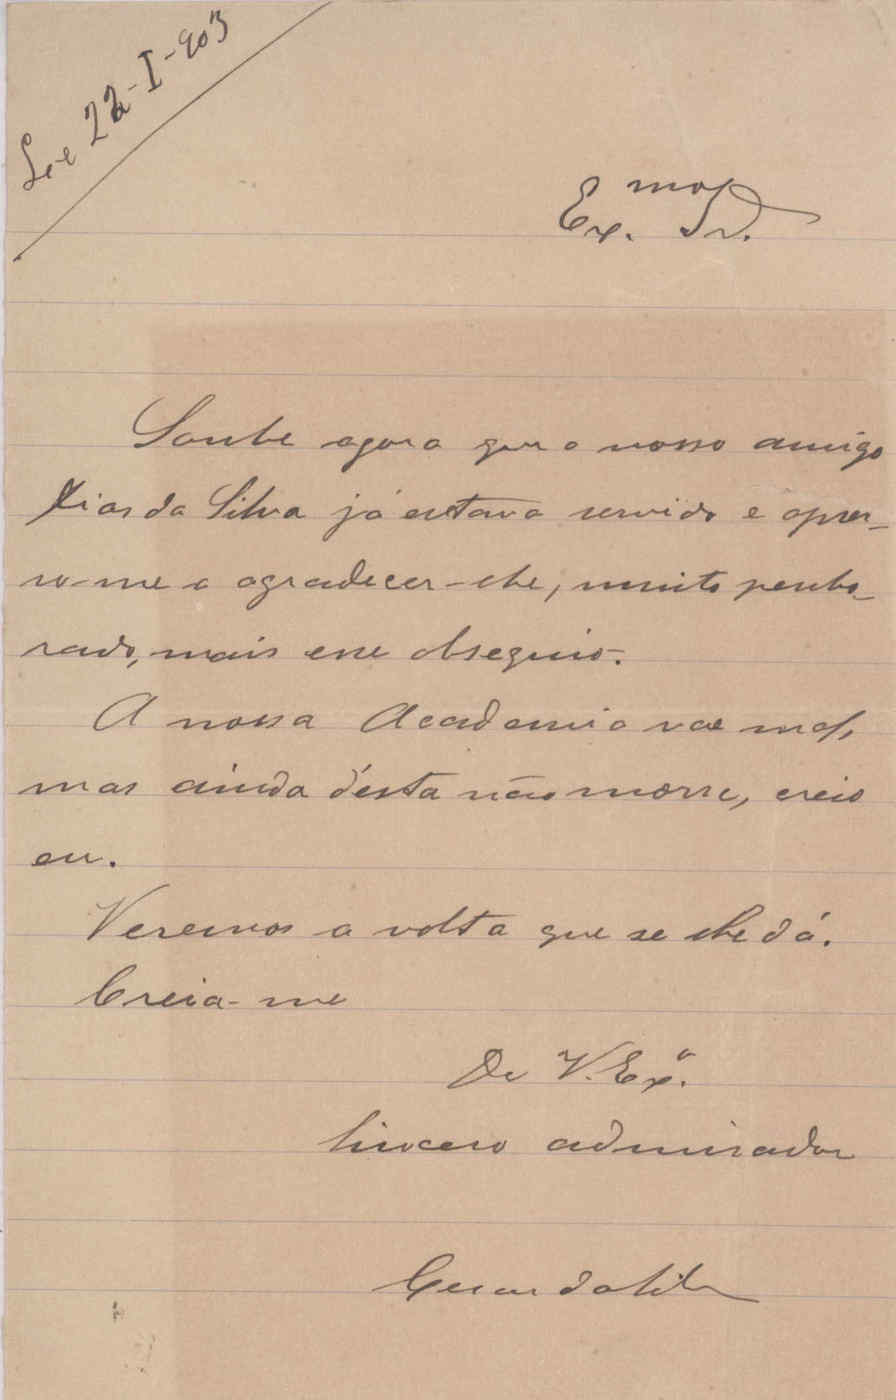 22-I-903
Ex.mo Sr.
Soube agora que o nosso amigo
Dias da Silva já estava servido e apres-
so-me a agradecer-lhe, muito penho-
rado, mais esse obsequio.
A nossa Academia vae mal,
mas ainda d'esta não morre, creio
eu.
Veremos a volta que se lhe dá.
Creia-me
De V. Ex.ª
sincero admirador
Cesar da Silva